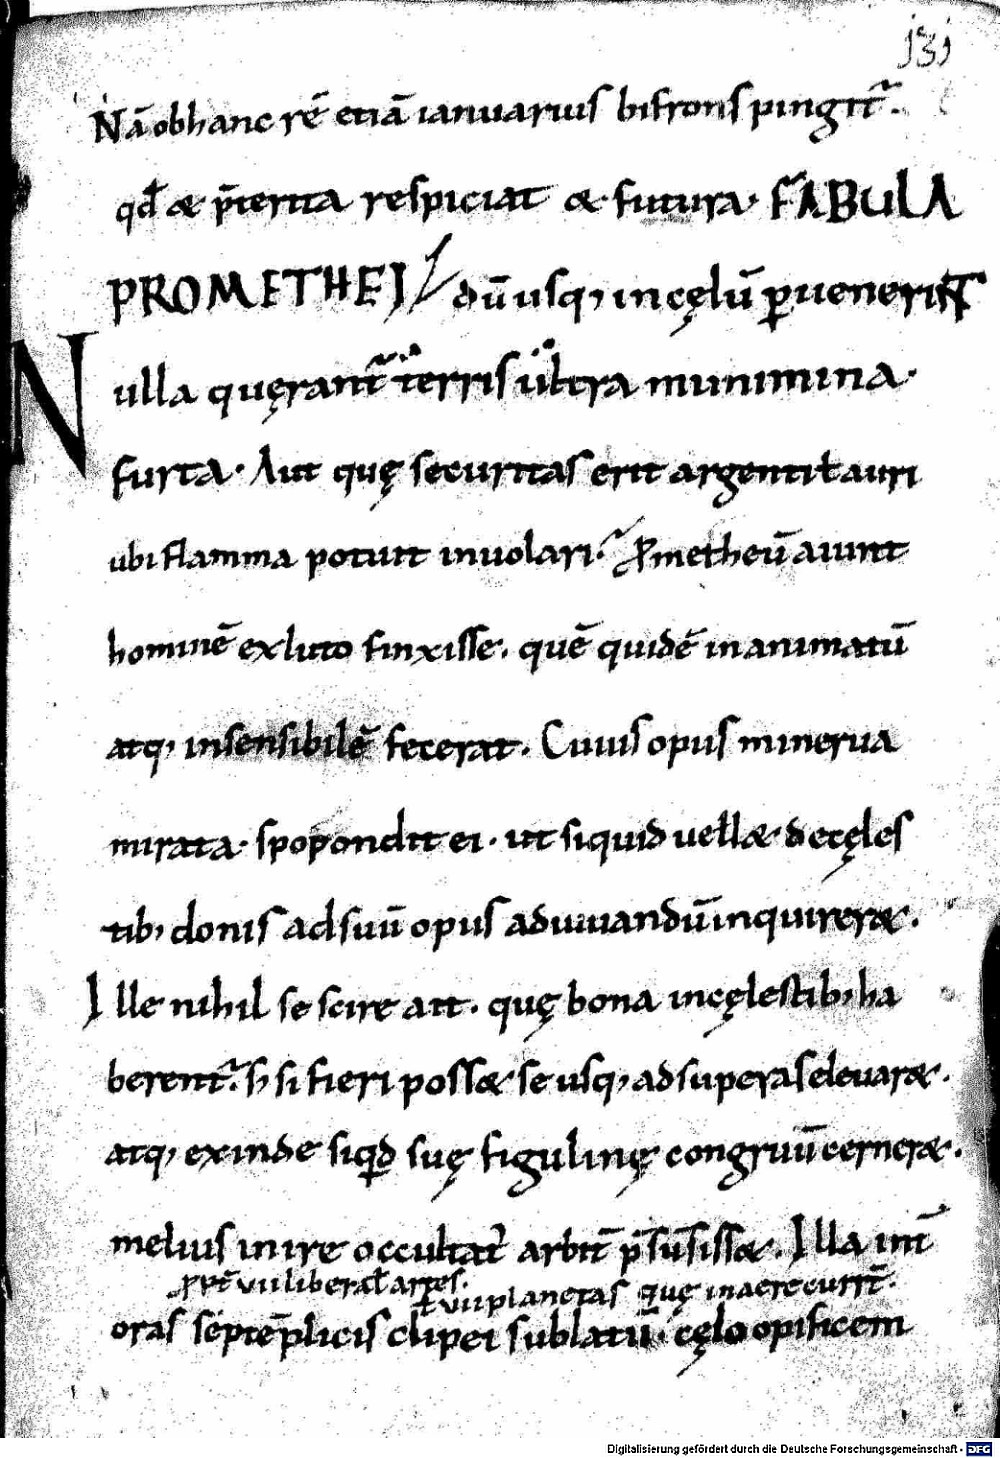 131
Nā ob hanc rē etiā ianuarius bifrons pingit᷑.
qđ & p̄terita respiciat & futura. FABULA
PROMETHEI / dū usq; in cęlū ꝑuenerint
Nulla quęrant᷑ terris ultra munimina.
furta. Aut quę securitas erit argenti ł auri
ubi flamma potuit inuolari. ꝓmetheū aiunt
hominē ex luto finxisse. quē quidē inanimatū
atq; insensibilē fecerat. Cuius opus minerua
mirata. spopondit ei. ut siquid uellæ de cęles
tib; donis ad suū opus adiuuandū inquireræ.
Ille nihil se scire ait. quę bona in cęlestib; ha
berent᷑. s; si fieri possæ se usq; ad superas eleuaræ.
atq; exinde siqđ suę figulinę congruū cerneræ.
melius in re occultat᷑ arbit̄ p̄sū sissæ. Illa int̄
ꝓpt̄ vii liberal artes.
ł vii planetas quę in aere currt̄.
oras septēplicis clipei sublatū. cęlo opificem
Digitalisierung gefördert durch die Deutsche Forschungsgemeinschaft - DFG